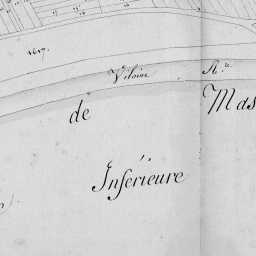 1617.
Viloine R.re
de Mas
Inférieure